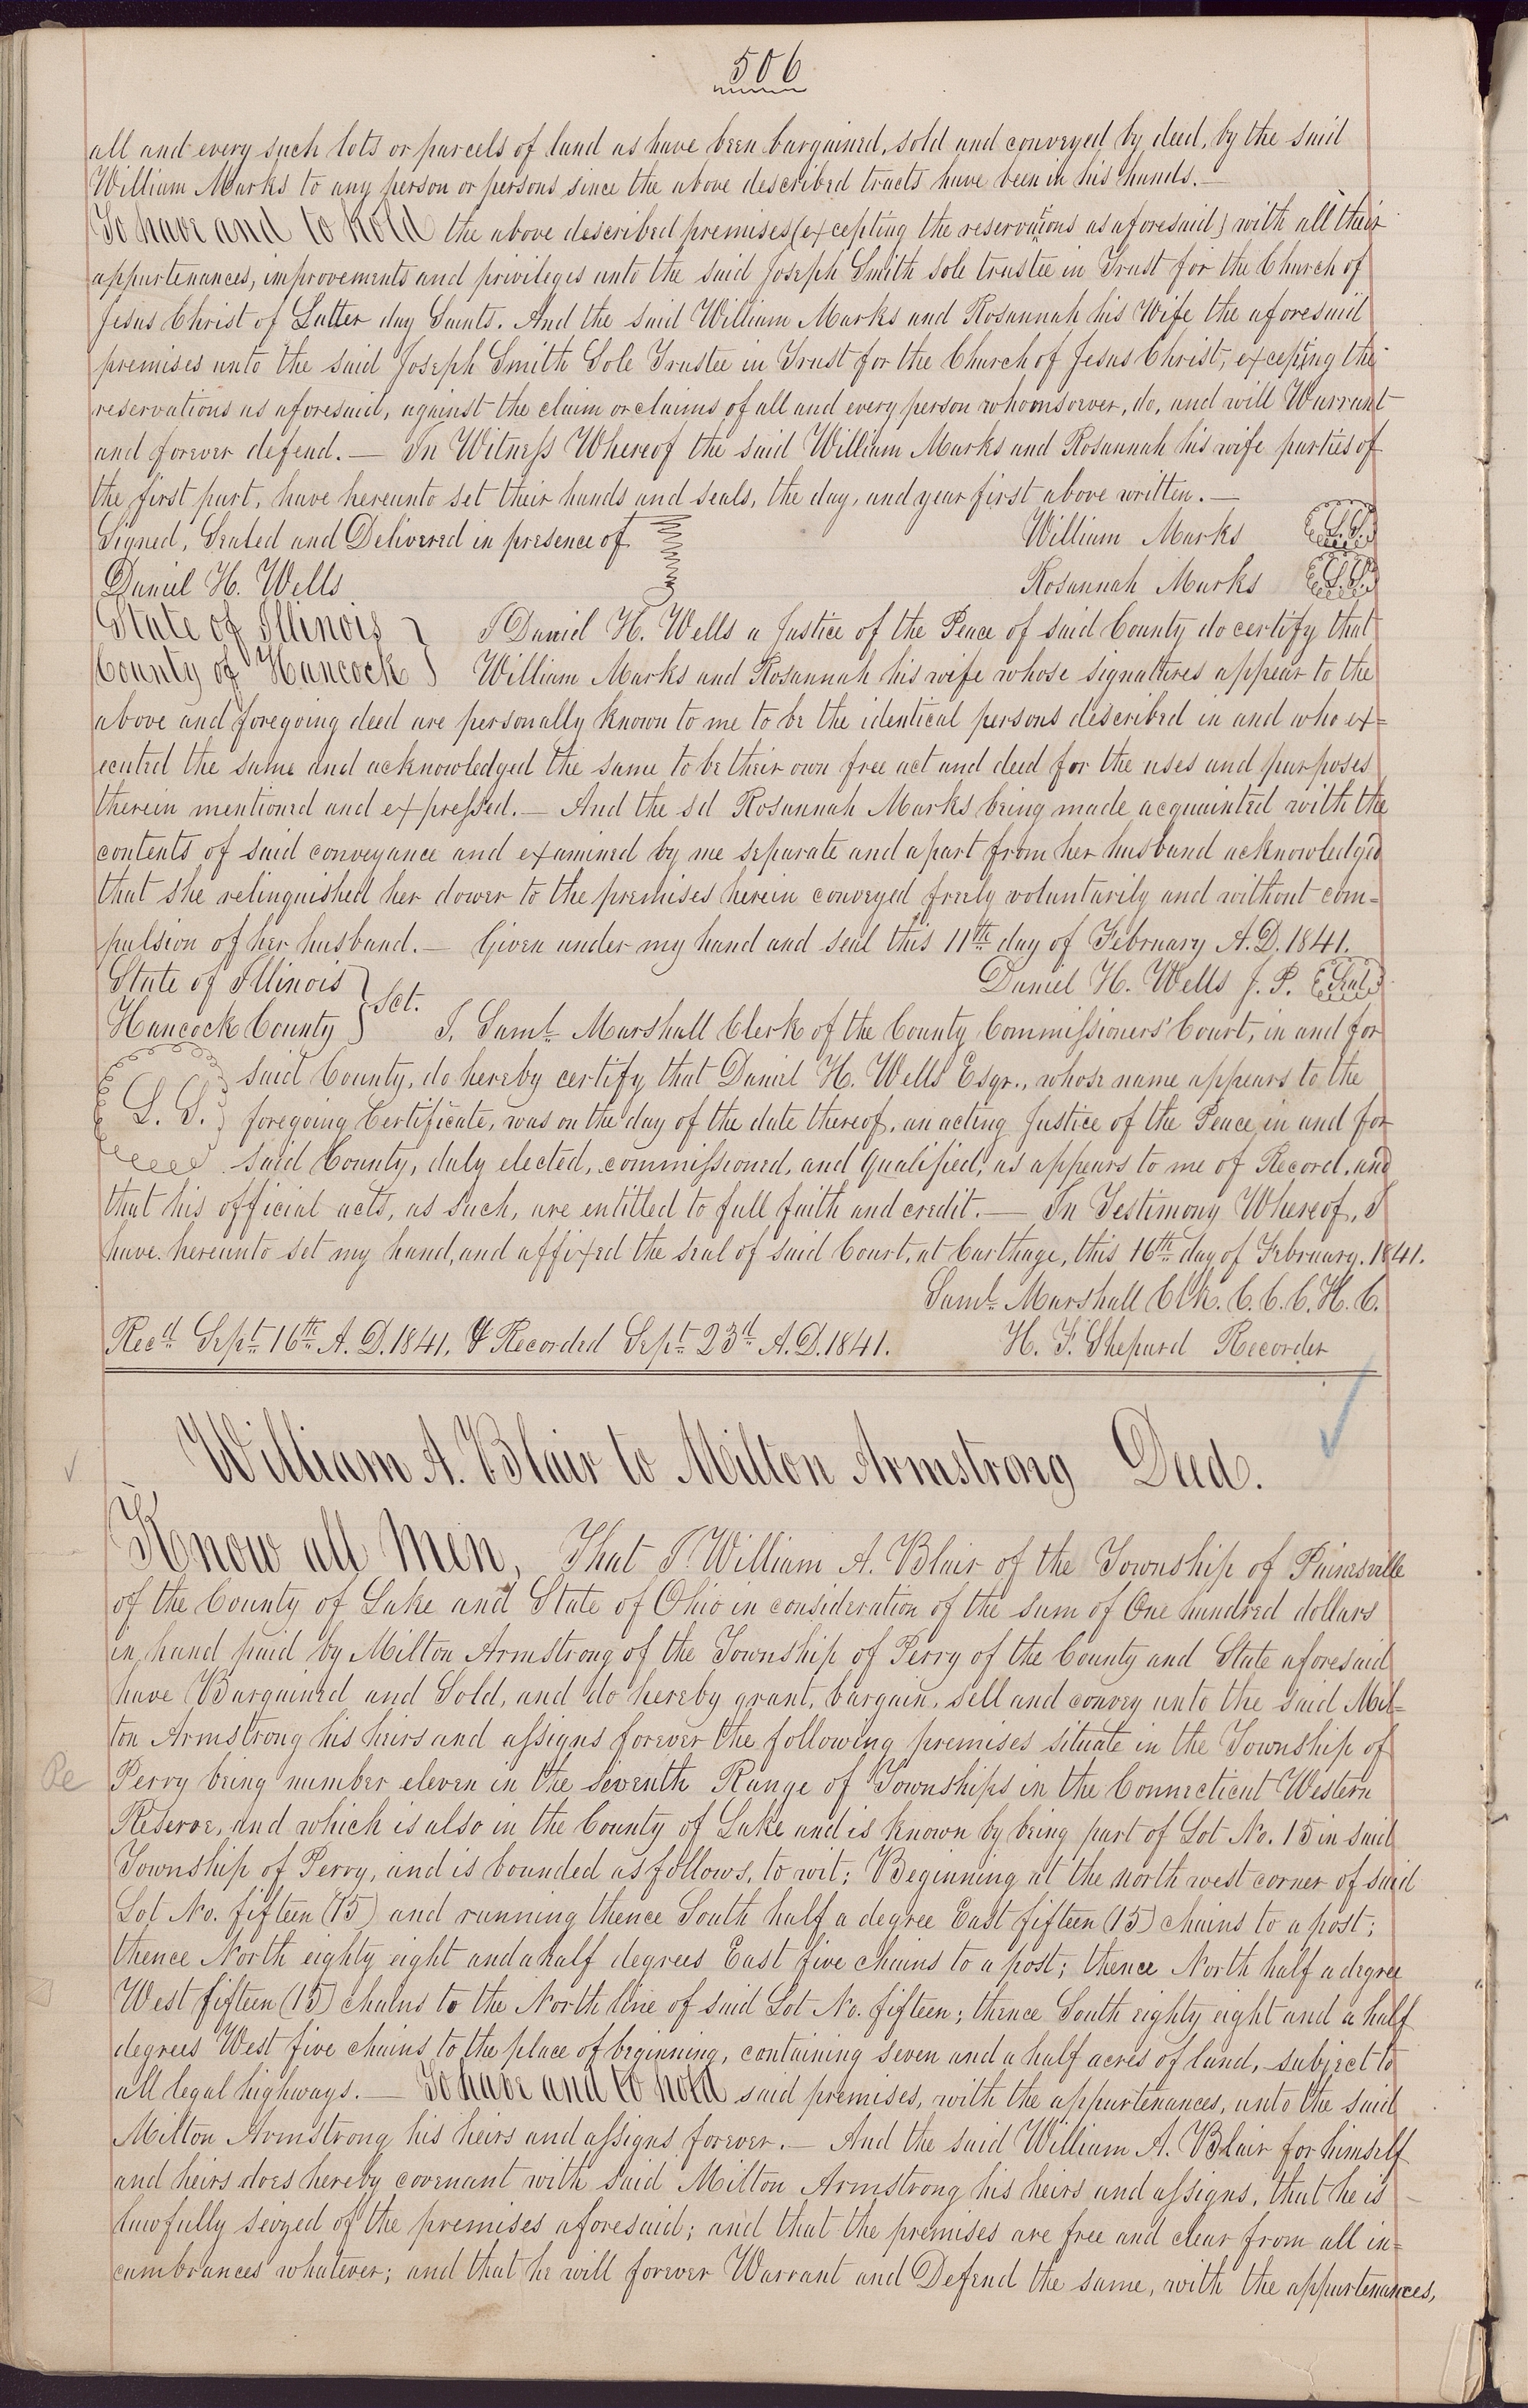 506
all and every such lots or parcels of land as have been bargained, sold and conveyed by deed, by the said
William Marks to any person or persons since the above described tracts have been in his hands.—
To have and to hold the above described premises (excepting the reservations as aforesaid) with all their
appurtenances, improvements and privileges unto the said Joseph Smith sole trustee in Trust for the Church of
Jesus Christ of Latter day Saints. And the said William Marks and Rosannah his Wife the aforesaid
premises unto the said Joseph Smith Sole Trustee in Trust for the Church of Jesus Christ, excepting the
reservations as aforesaid, against the claim or claims of all and every person whomsoever, do, and will Warrant
and forever defend.— In Witness Whereof the said William Marks and Rosannah his wife parties of
the first part, have hereunto set their hands and seals, the day, and year first above written.—
Signed, Sealed and Delivered in presence of William Marks L.S.
Daniel H. Wells Rosannah Marks L.S.
State of Illinois } I Daniel H. Wells a Justice of the Peace of said County do certify that
County of Hancock } William Marks and Rosannah his wife whose signatures appear to the
above and foregoing deed are personally known to me to be the identical persons described in and who ex=
ecuted the same and acknowledged the same to be their own free act and deed for the uses and purposes
therein mentioned and expressed.— And the sd Rosannah Marks being made acquainted with the
contents of said conveyance and examined by me separate and apart from her husband acknowledged
that she relinquished her dower to the premises herein conveyed freely voluntarily and without com=
pulsion of her husband.— Given under my hand and seal this 11th day of February A.D. 1841.
State of Illinois } Daniel H. Wells J. P. Seal
Hancock County } Sct. I, Saml. Marshall Clerk of the County Commissioners' Court, in and for
said County, do hereby certify that Daniel H. Wells Esqr., whose name appears to the
L. S. foregoing Certificate, was on the day of the date thereof, an acting Justice of the Peace in and for
said County, duly elected, commissioned, and qualified, as appears to me of Record, and
that his official acts, as such, are entitled to full faith and credit.— In Testimony Whereof, I
have hereunto set my hand, and affixed the seal of said Court, at Carthage, this 16th day of February. 1841.
Saml. Marshall Clk. C. C. C. H. C.
Recd. Sept. 16th A. D. 1841, & Recorded Sept. 23d A. D. 1841. H. T. Shepard Recorder
William A. Blair to Milton Armstrong Deed.
Know all Men, That I William A. Blair of the Township of Painesville
of the County of Lake and State of Ohio in consideration of the sum of One hundred dollars
in hand paid by Milton Armstrong of the Township of Perry of the County and State aforesaid
have Bargained and Sold, and do hereby grant, bargain, sell and convey unto the said Mil=
ton Armstrong his heirs and assigns forever the following premises situate in the Township of
Perry being number eleven in the seventh Range of Townships in the Connecticut Western
Reserve, and which is also in the County of Lake and is known by being part of Lot No. 15 in said
Township of Perry, and is bounded as follows, to wit: Beginning at the north west corner of said
Lot No. fifteen (15) and running thence South half a degree East fifteen (15) chains to a post;
thence North eighty eight and a half degrees East five chains to a post; thence North half a degree
West fifteen (15) chains to the North line of said Lot No. fifteen; thence South eighty eight and a half
degrees West five chains to the place of beginning, containing seven and a half acres of land, subject to
all legal highways.— To have and to hold said premises, with the appurtenances, unto the said
Milton Armstrong his heirs and assigns forever.— And the said William A. Blair for himself
and heirs does hereby covenant with said Milton Armstrong his heirs and assigns, that he is
lawfully seized of the premises aforesaid; and that the premises are free and clear from all in=
cumbrances whatever; and that he will forever Warrant and Defend the same, with the appurtenances,